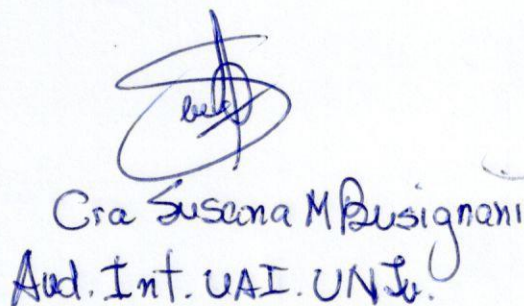 Cra Susana M Busignani
Aud. Int. UAI. UNJu.